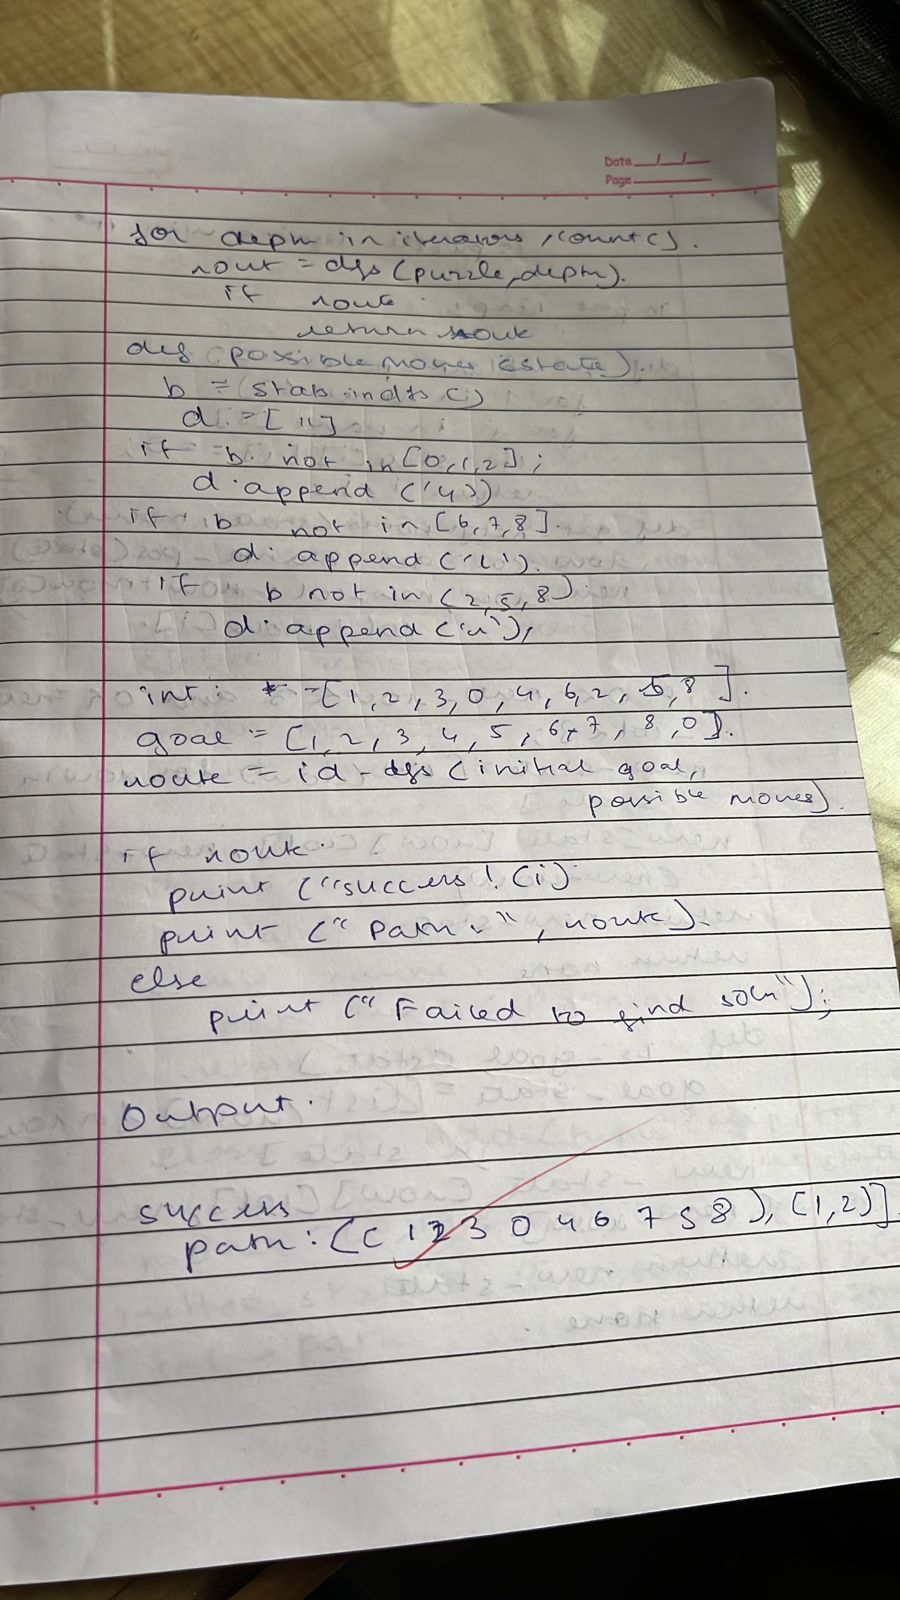 Date
Page
for depth in iterators, count().
rout = dfs (puzzle, depth).
if route
return route
def possible moves (state):
b = (state.index ()
d = [ ]
if b not in [0,1,2];
d.append ('u')
if b not in [6,7,8].
d.append ('L').
if b not in (2,5,8)
d.append ('r');
int: = [1,2,3,0,4,6,2,5,8].
goal = [1,2,3,4,5,6,7,8,0].
route = id-dfs (initial goal,
possible moves).
if route.
print ("success! (i)
print ("Path.", route).
else
print ("Failed to find soln");
Output.
success
path: (( 1 2 3 0 4 6 7 5 8), (1,2)].